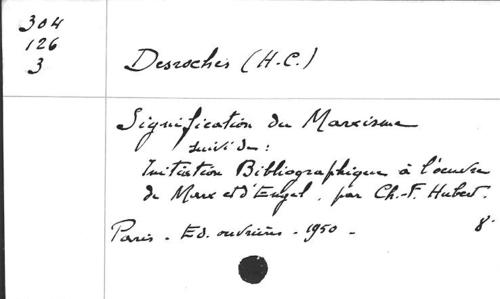 304
126
3
Desroches (H.-C.)
Signification du Marxisme
suivi de :
Initiation Bibliographique à l'oeuvre
de Marx et d'Engel. par Ch.-F. Hubert.
Paris - Ed. ouvrières - 1950 -
8°